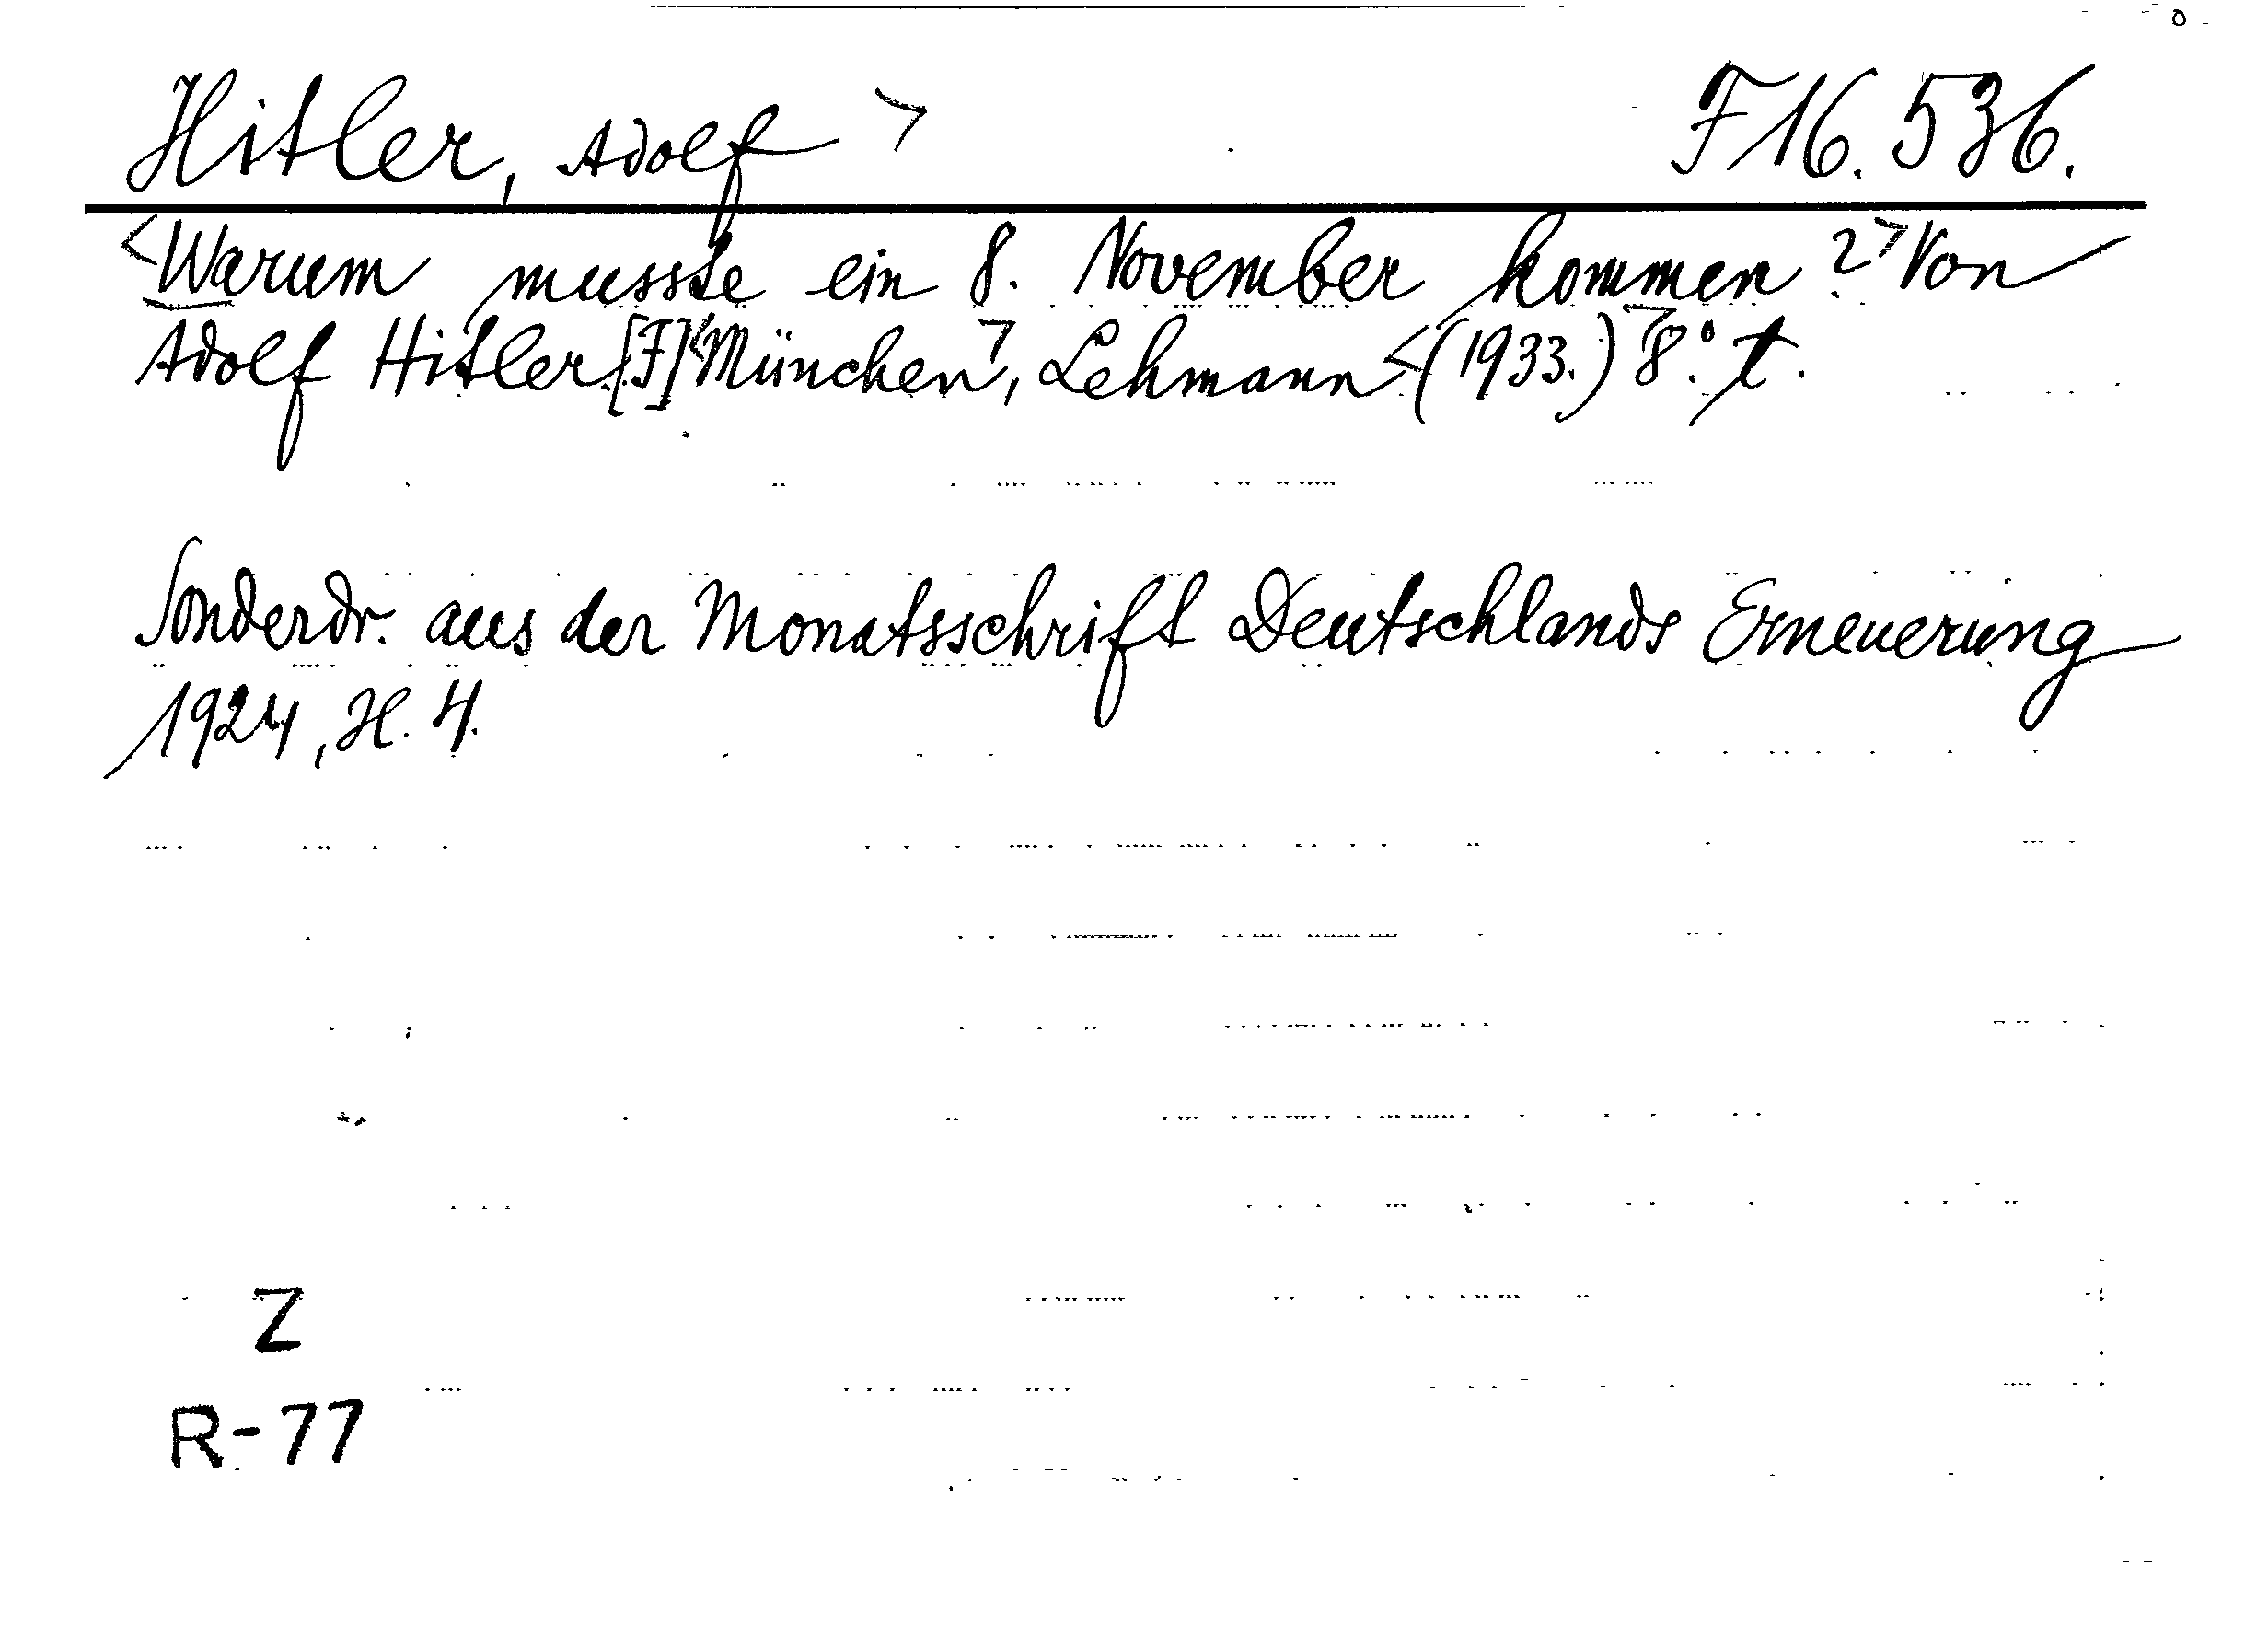 Hitler, Adolf > F 16.536.
<Warum musste ein 8. November kommen?> Von
Adolf Hitler. [F] <München>, Lehmann <(1933.)> 8°. t.
Sonderdr. aus der Monatsschrift Deutschlands Erneuerung
1924, H. 4.
Z
R-77